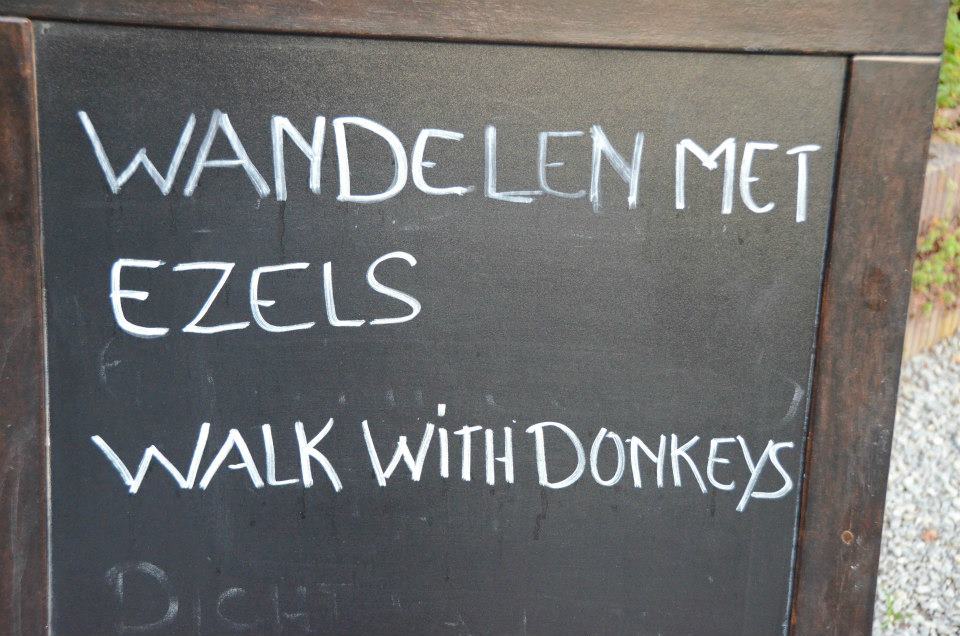 WANDELEN MET
EZELS
WALK WiTH DONKEYS
DICHT